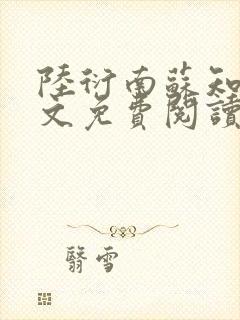 陸衍南蘇知
文免費閱讀
翳雪